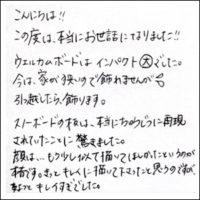 こんにちは!!
この度は、本当にお世話になりました!!
ウェルカムボードは インパクト大でした。
今は、家が狭いので飾れませんが
引っ越したら、飾ります。
スノーボードの板は、本当にそのとおりに再現
されていたことに 驚きました。
顔は…もう少し似せて描いてほしかったというのが
本音です。きっと キレイに描いて下さったと思うのですが、
ちょっと キレイすぎでした。